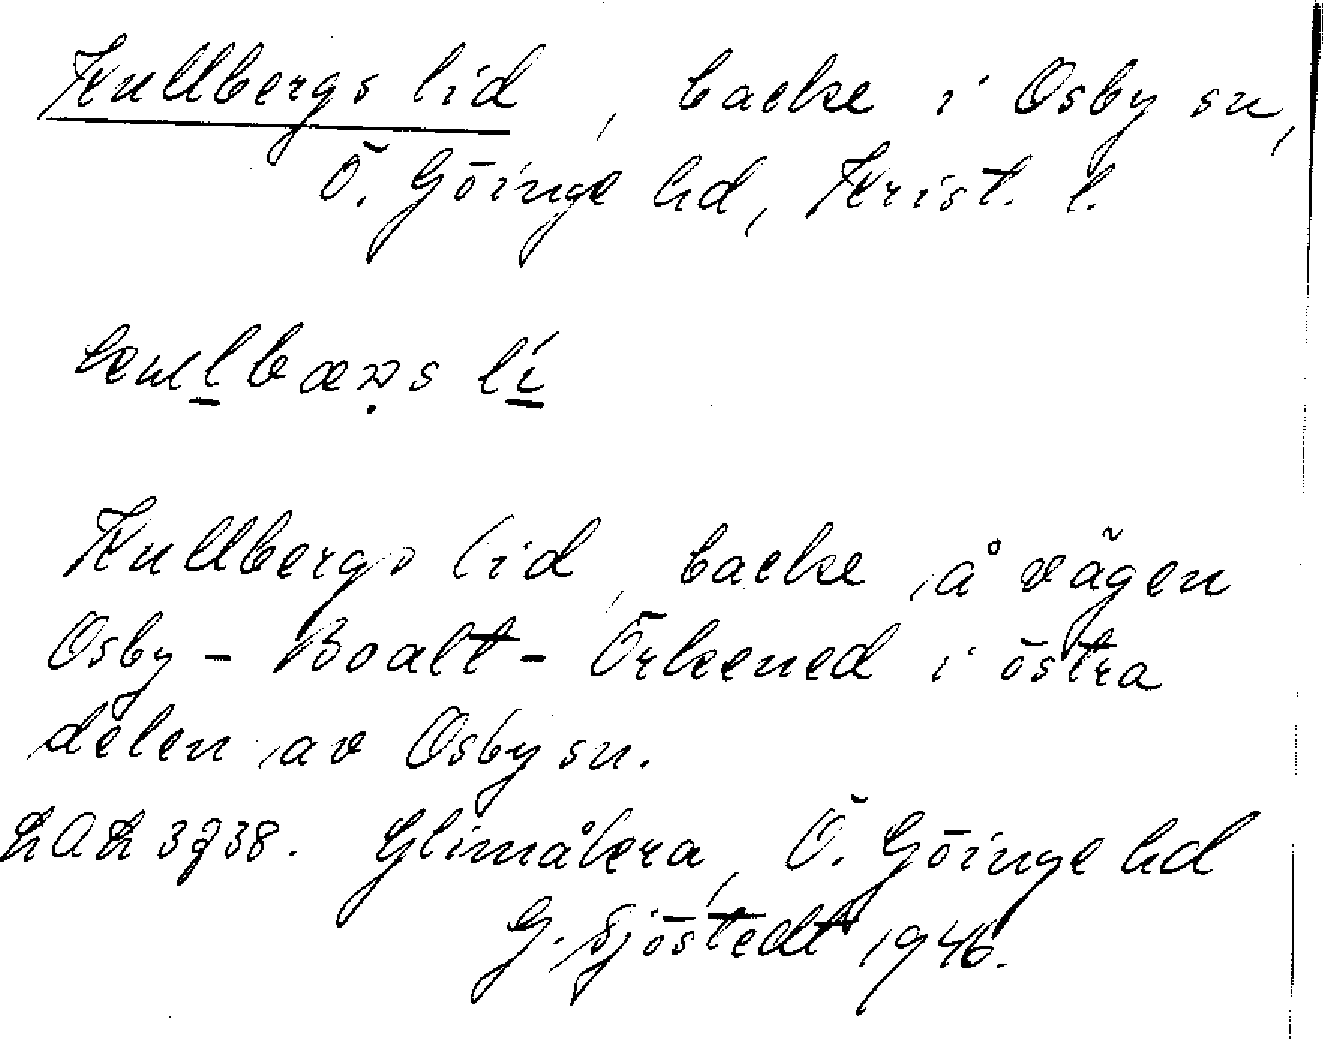 Kullbergs lid, backe i Osby sn,
Ö. Göinge hd, Krist. l.
Kullbergs lid, backe å vägen
Osby - Boalt - Örkened i östra
delen av Osby sn.
Glimåkra, Ö. Göinge hd
G. Sjöstedt 1946.